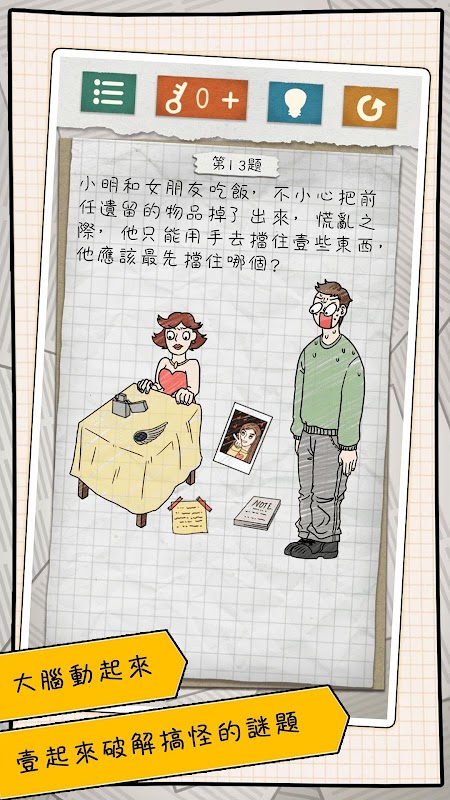 0 +
第13題
小明和女朋友吃飯，不小心把前
任遺留的物品掉了出來，慌亂之
際，他只能用手去擋住壹些東西，
他應該最先擋住哪個？
NOTE
大腦動起來
壹起來破解搞怪的謎題